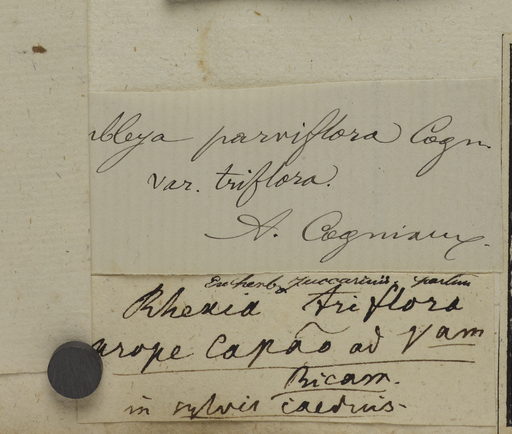 bleya parviflora Cogn.
var. triflora.
A. Cogniaux.
Ex herb. Zuccarinii, partim
Rhexia triflora
prope Capão ad Vam
Ricam.
in sylvis caeduis.